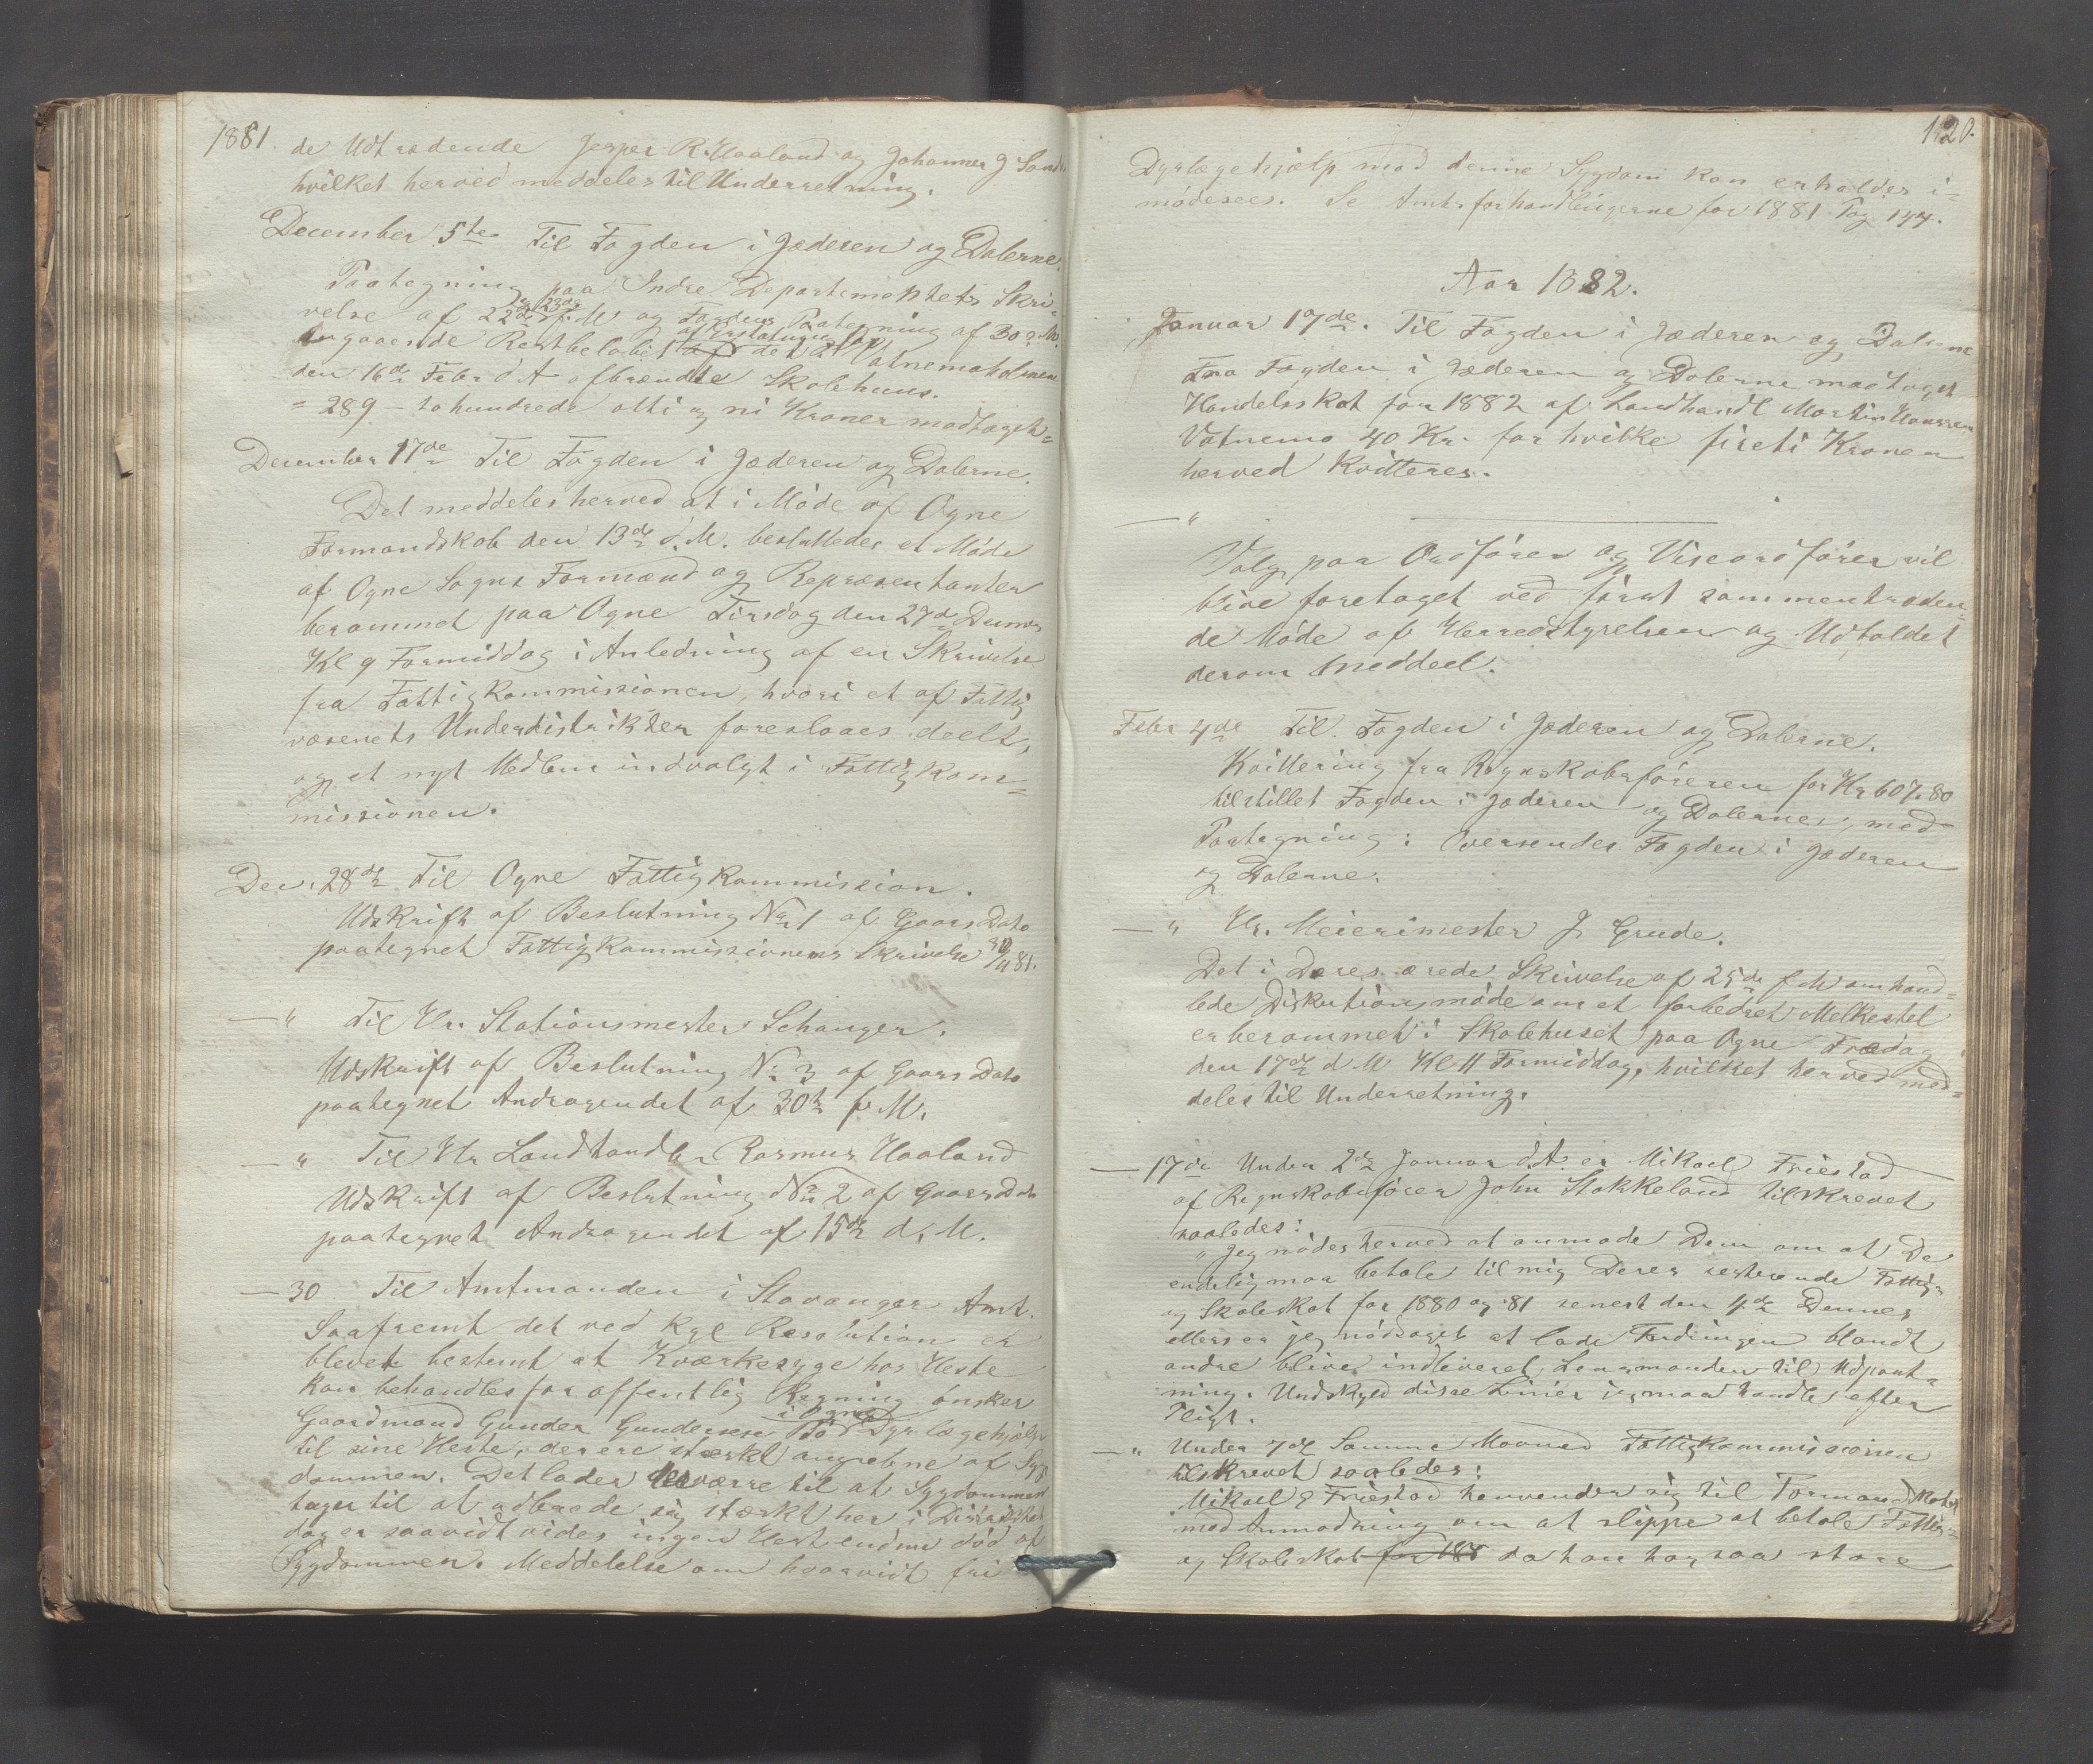 1881. de Udtrædende Jesper R. Haaland og Johannes J
hvilket herved meddeles til Underretning.
December 5te Til Fogden i Jæderen og Dalerne.
Paategning paa Indre Departementets Skri-
velse af 22de f. M og Fogdens Paategning af 30 s. M.
angaaende Restbeløbet af det
den 16de Febr d A afbrændte Skolehuus.
= 289 - tohundrede otti og ni Kroner modtaget=
December 17de Til Fogden i Jæderen og Dalerne.
Det meddeles herved at i Møde af Ogne
Formandskab den 13de d. M. besluttedes et Møde
af Ogne Sogns Formænd og Repræsentanter
berammet paa Ogne Tirsdag den 27de Dennes
Kl 9 Formiddag i Anledning af en Skrivelse
fra Fattigkommissionen, hvori et af Fattig
væsenets Underdistrikter foreslaaes deelt,
og et nyt Medlem indvalgt i Fattigkom=
missionen.
Dec. 28de Til Ogne Fattigkommission.
Udskrift af Beslutning No 1 af Gaars Dato
paategnet Fattigkommissionens Skrivelse 30/11 81.
— " Til Hr. Stationsmester Schanger.
Udskrift af Beslutning No 3 af Gaars Dato
paategnet Andragendet af 30te f. M.
— " Til Hr Landhandler Rasmus Haaland
Udskrift af Beslutning No 2 af Gaars Dato
paategnet Andragendet af 15de d. M.
— 30 Til Amtmanden i Stavanger Amt.
Saafremt det ved Kgl Resolution er
blevet bestemt at Kværkesyge hos Heste
kan behandles for offentlig Regning ønsker
i Ogne
Gaardmand Gunder Gundersen Bø Dyrlægehjælp
til sine Heste, der ere stærkt angrebne af Syg
dommen. Det lader desværre til at Sygdommen
tager til at udbrede sig stærkt her i Distriktet
dog er saavidt vides ingen Hest endnu død af
Sygdommen. Meddelelse om hvorvidt fri
120.
Dyrlægehjælp mod denne Sygdom kan erholdes i-
mødesees. Se Amtsforhandlingerne for 1881 Pag 144.
Aar 1882.
Januar 17de. Til Fogden i Jæderen og Dalerne
Fra Fogden i Jæderen og Dalerne modtaget
Handelsskat for 1882 af Landhandl Morten Hansen
Vatnemo 40 Kr. for hvilke fireti Kroner
herved kvitteres.
— "
Valg paa Ordfører og Viseordfører vil
blive foretaget ved først sammentræden=
de Møde af Herredstyrelsen og Udfaldet
derom meddeel.
Febr 4de Til Fogden i Jæderen og Dalerne.
Kvittering fra Regnskabsføreren for Kr 607.80
tilstillet Fogden i Jæderen og Dalerne, med
Paategning: Oversendes Fogden i Jæderen
og Dalerne.
— " Hr. Meierimester J. Grude.
Det i Deres ærede Skrivelse af 25de f. M omhand=
lede Diskutionsmøde om et forbedret Melkestel
er berammet i Skolehuset paa Ogne Fredag
den 17de d M Kl 11 Formiddag, hvilket herved med=
deles til Underretning.
— 17de Under 2de Januar d. A. er Mikael Friestad
af Regnskabsfører John Stokkeland tilskrevet
saaledes:
" Jeg nødes herved at anmode Dem om at De
endelig maa betale til mig Deres resterende Fattig=
og Skoleskat for 1880 og 81 senest den 4de Dennes
ellers er jeg nødsaget at lade Fordringen blandt
andre blive indleveret Lensmanden til Udpant=
ning. Undskyld disse Linier jeg maa handle efter
Pligt.
— " Under 7de Samme Maaned Fattigkommissionen
tilskrevet saaledes:
Mikael E Friestad henvender sig til Formand
med Anmodning om at slippe at betale Fattig=
og Skoleskat for 188 da han har saa store